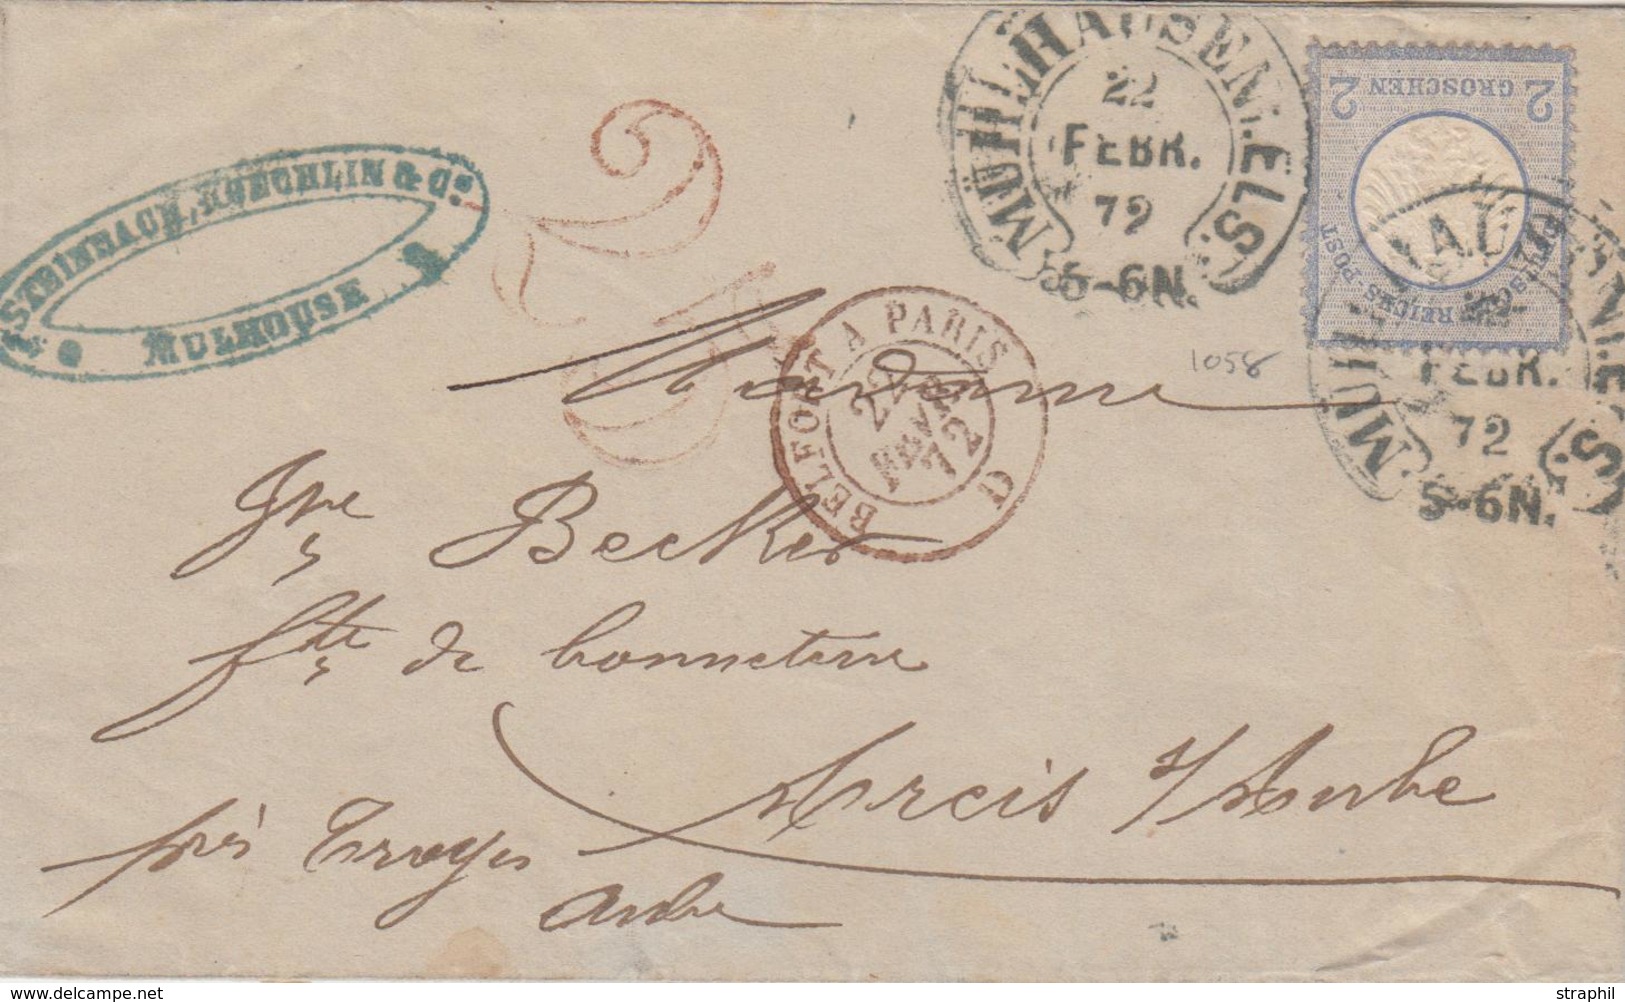 STEINBACH, KOECHLIN & Cº
MULHOUSE
MÜHLHAUSEN I. ELS.
22
FEBR.
72
5-6N.
2 GROSCHEN 2
DEUTSCHE REICHS-POST
MÜHLHAUSEN I. ELS.
FEBR.
72
5-6N.
1058
BELFORT A PARIS
22
FEVR
72
D
Madame
Vve Becker
fte de bonneterie
Arcis s/Aube
près Troyes
Aube
www.delcampe.net
straphil